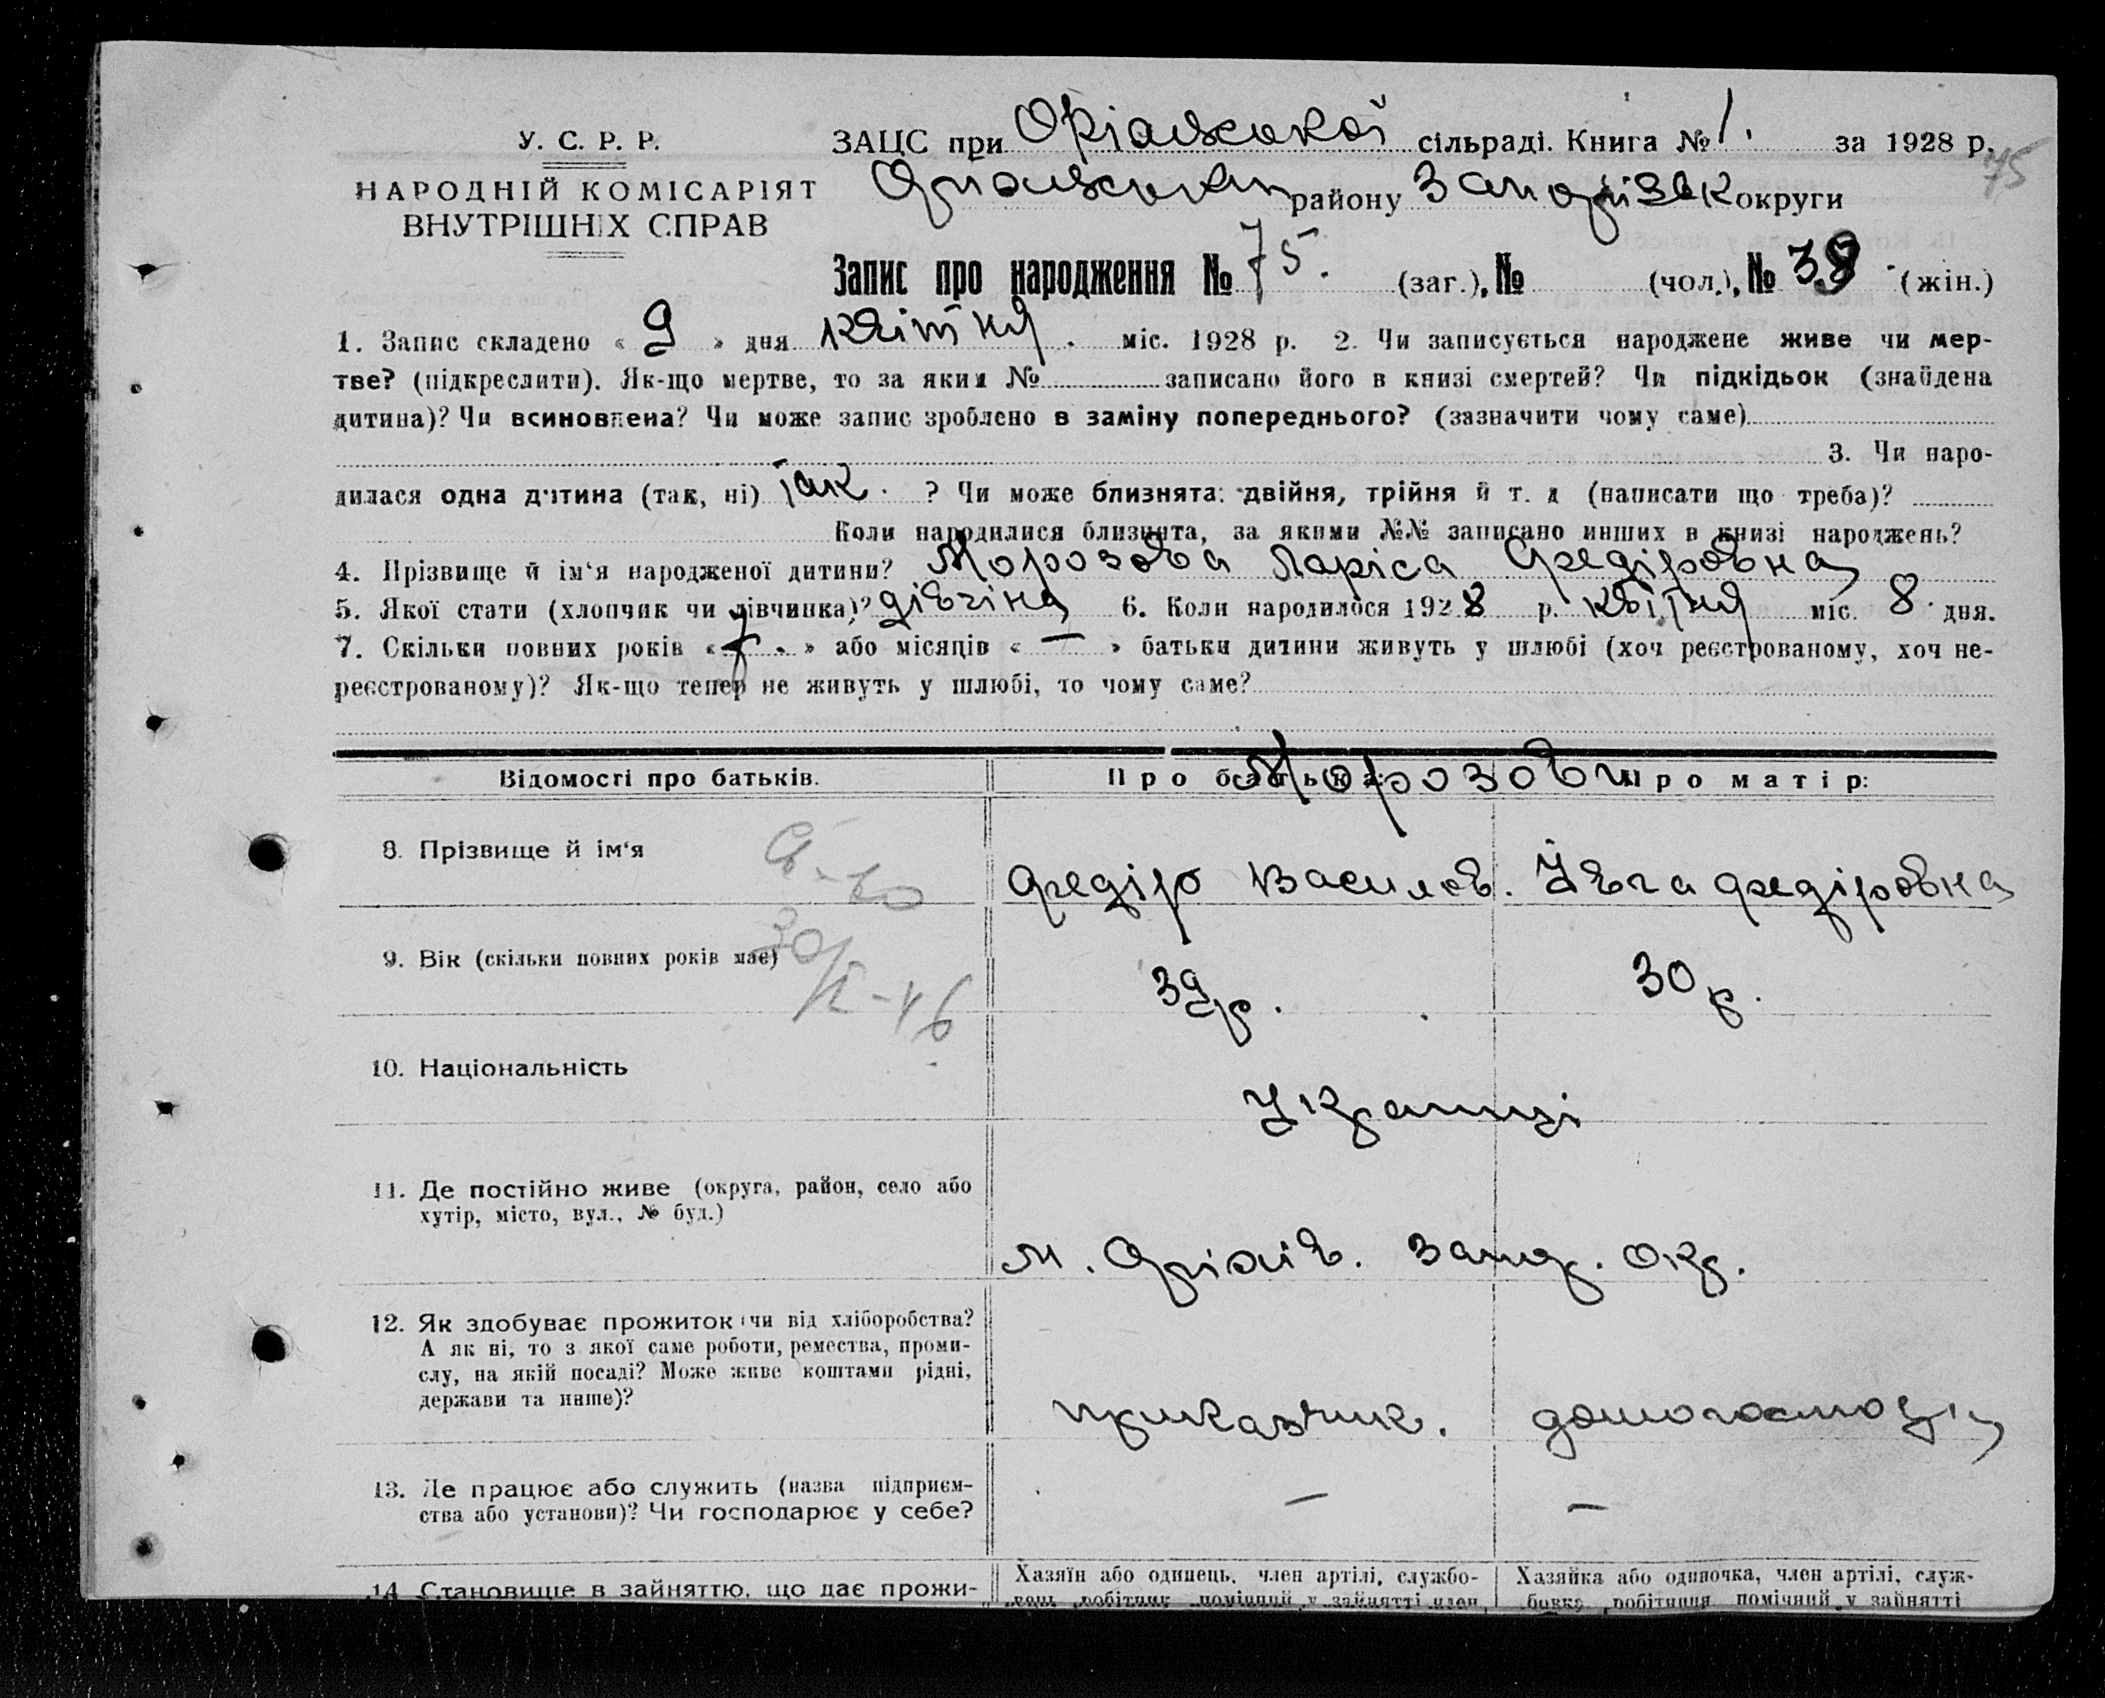 У. С. Р. Р.
НАРОДНІЙ КОМІСАРІЯТ
ВНУТРІШНІХ СПРАВ
ЗАЦС при Оріхівської сільраді. Книга № 1. за 1928 р.
75
Оріхівськ району Запорізьк округи
Запис про народження № 75. (заг.), № (чол.), № 39. (жін.)
1. Запис складено « 9 » дня квітня. міс. 1928 р. 2. Чи записується народжене живе чи мер-
тве? (підкреслити). Як-що мертве, то за яким № записано його в книзі смертей? Чи підкідьок (знайдена
дитина)? Чи всиновлена? Чи може запис зроблено в заміну попереднього? (зазначити чому саме)
3. Чи наро-
дилася одна дитина (так, ні) так. ? Чи може близнята: двійня, трійня й т. д (написати що треба)?
Коли народилися близнята, за якими №№ записано инших в книзі народжень?
4. Прізвище й ім'я народженої дитини? Морозова Лариса Федіровна
5. Якої стати (хлопчик чи дівчинка)? дівчіна 6. Коли народилося 1928 р. квітня міс. 8 дня.
7. Скільки повних років « 7. » або місяців « — » батьки дитини живуть у шлюбі (хоч реєстрованому, хоч не-
реєстрованому)? Як-що тепер не живуть у шлюбі, то чому саме?
Відомості про батьків. Про батька: Про матір:
Морозови
8. Прізвище й ім'я Федір Васильов. Івга Федіровна
9. Вік (скільки повних років має) 39 р. 30 р.
10. Національність Українці
11. Де постійно живе (округа, район, село або
хутір, місто, вул., № буд.)
м. Оріхів. Запор. окр.
12. Як здобуває прожиток: чи від хліборобства?
А як ні, то з якої саме роботи, ремества, проми-
слу, на якій посаді? Може живе коштами рідні,
держави та инше)?
приказчик. домогосподі
13. Де працює або служить (назва підприєм-
ства або установи)? Чи господарює у себе?
— —
14 Становище в зайняттю, що дає прожи-
Хазяїн або одинець, член артілі, службо-
Хазяйка або одиночка, член артілі, служ-